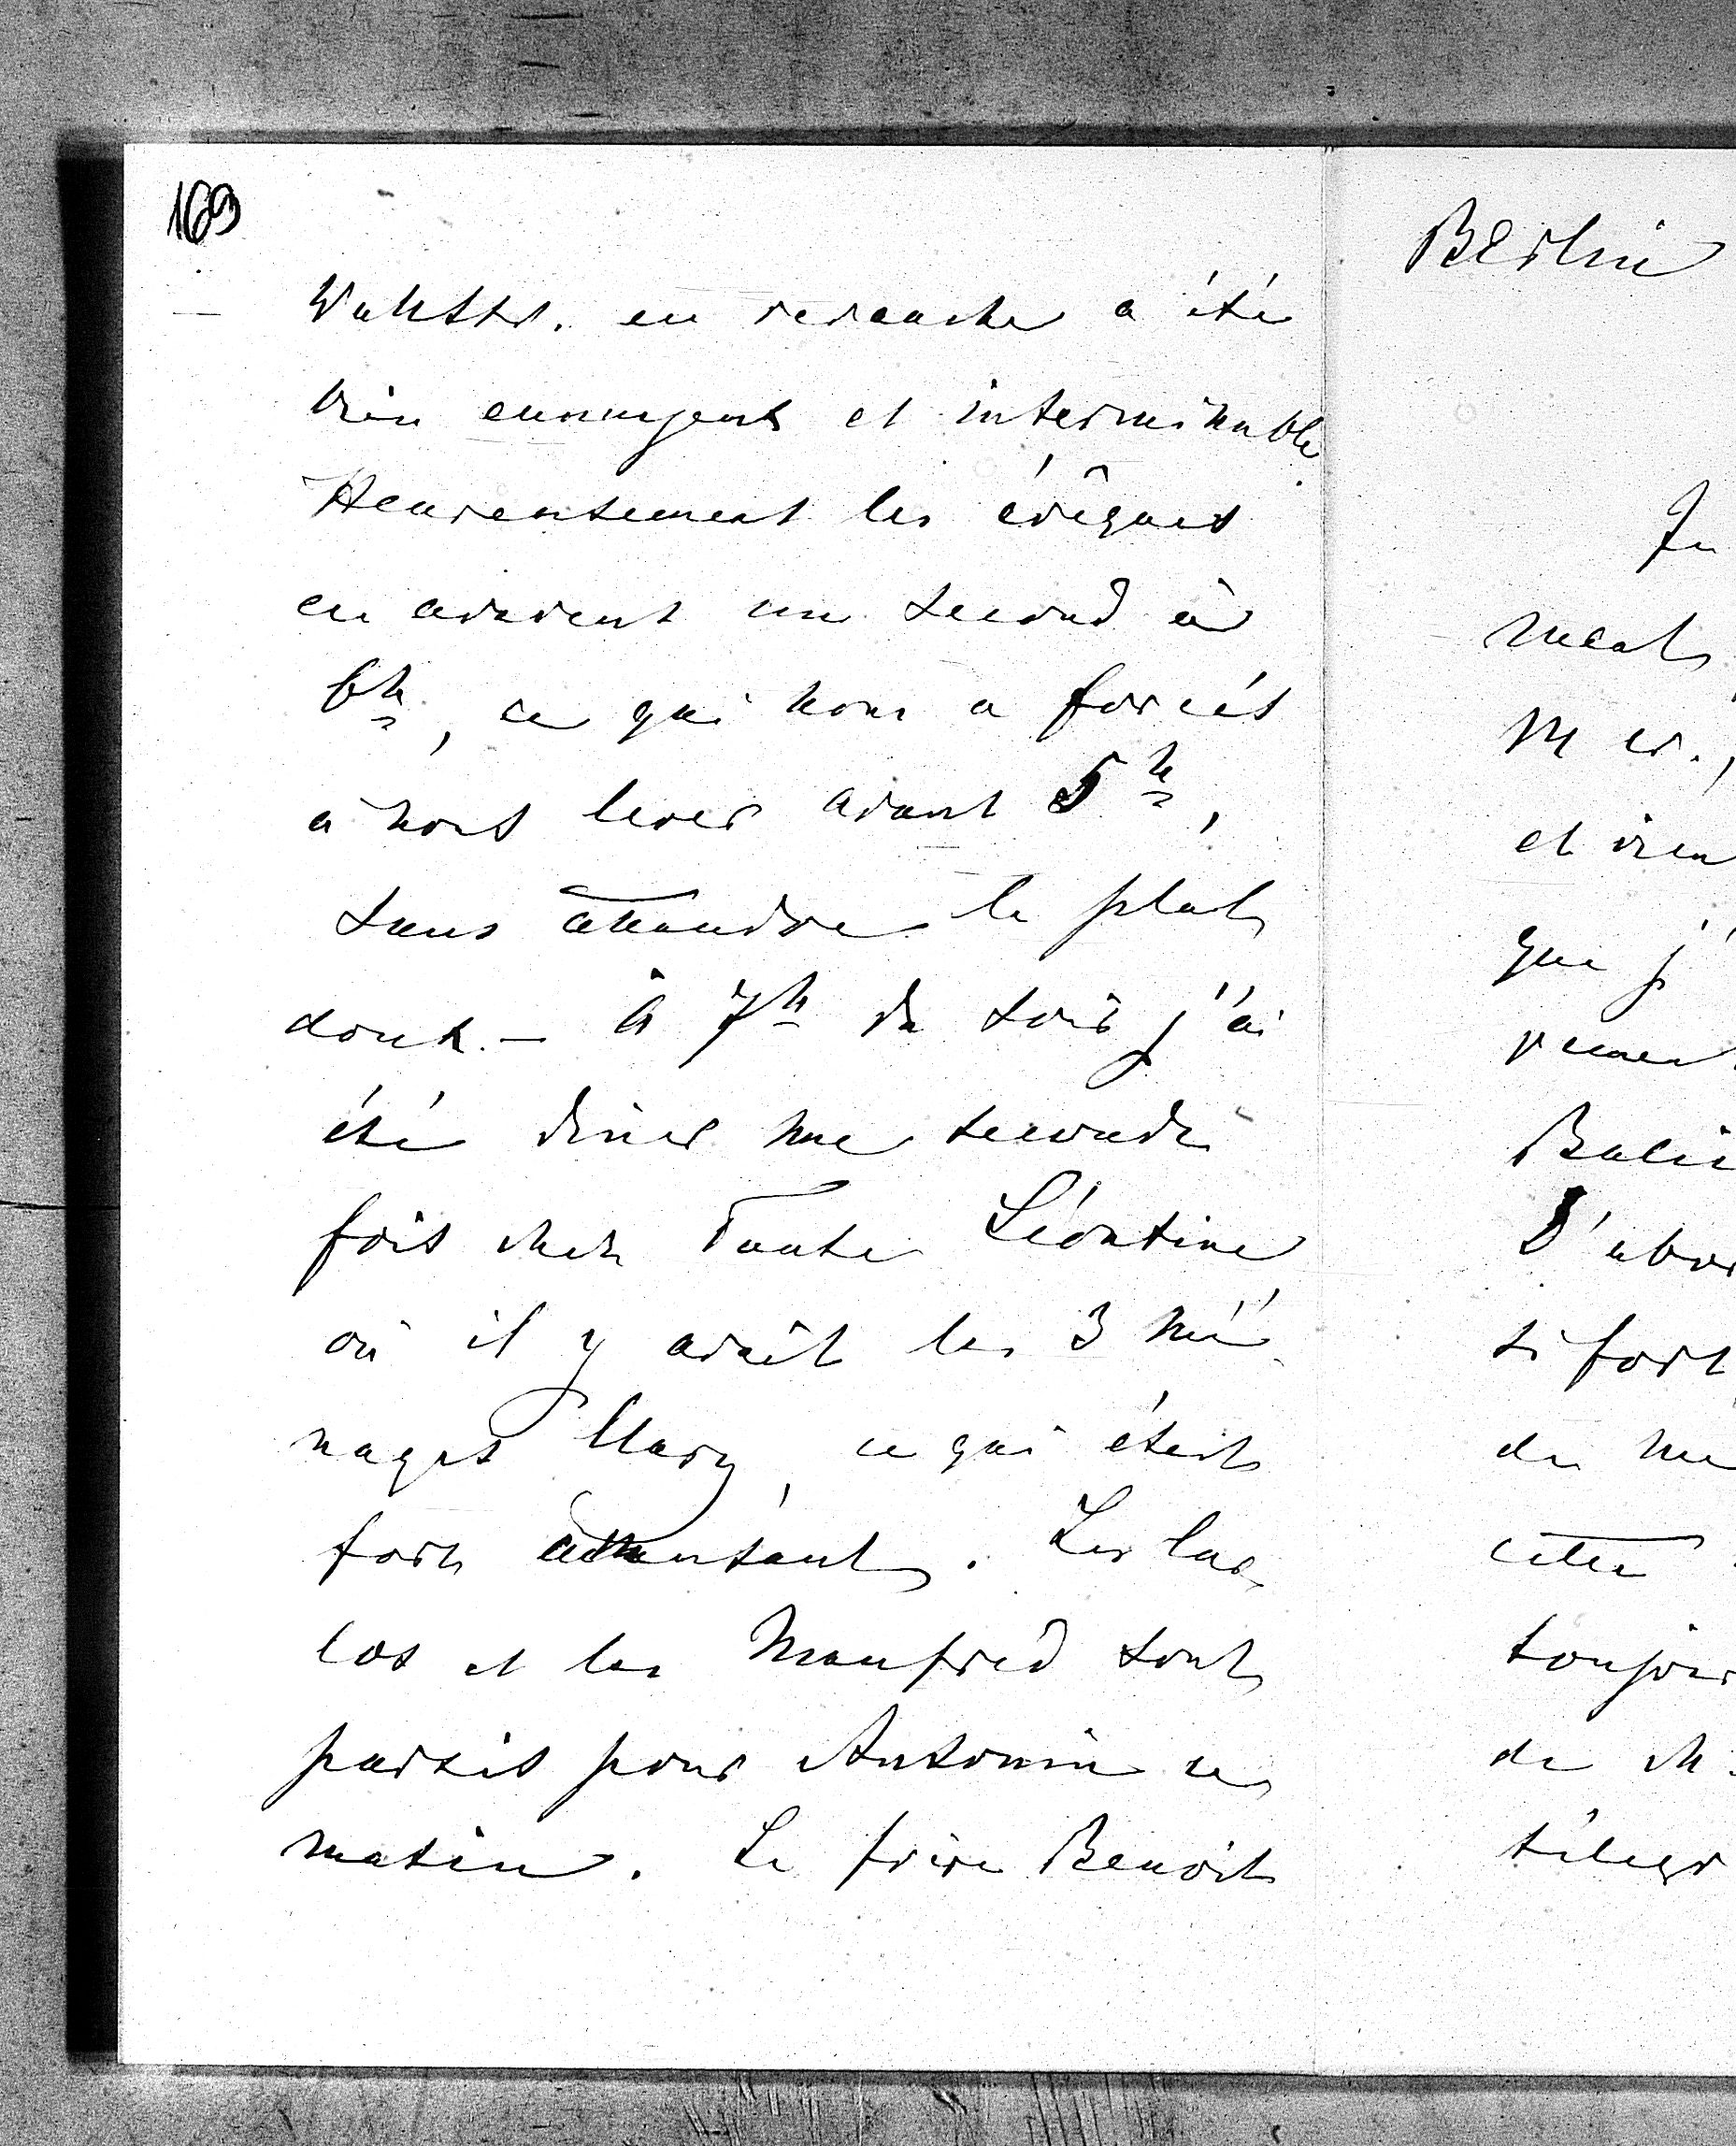 169
Wahlstr. en revanche a été
bien ennuyeux et interminable.
Heureusement les évêques
en avaient un second à
6h, ce qui nous a forcés
à nous lever avant 5h,
sans attendre le plat
doux. — à 7h du soir j'ai
été dîner une seconde
fois chez Tante Léontine
où il y avait les 3 mé-
nages Clary, ce qui était
fort amusant. Les Car-
los et les Manfred sont
partis pour Antonin ce
matin. Le frère Benoît
Berlin
Je
ment
et vien
que j'
D'abor
si fort
de me
cette
toujour
de ch
télégr